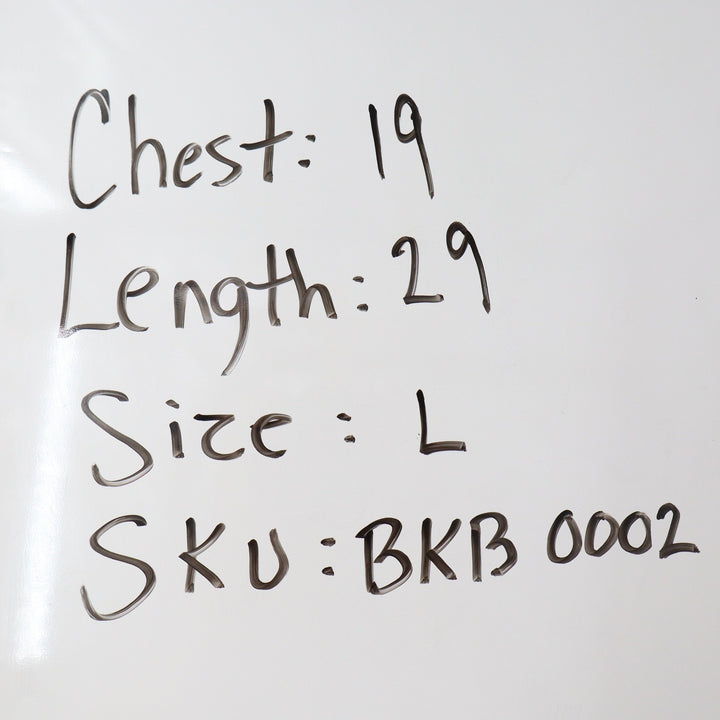 Chest: 19
Length: 29
Size: L
SKU: BKB 0002